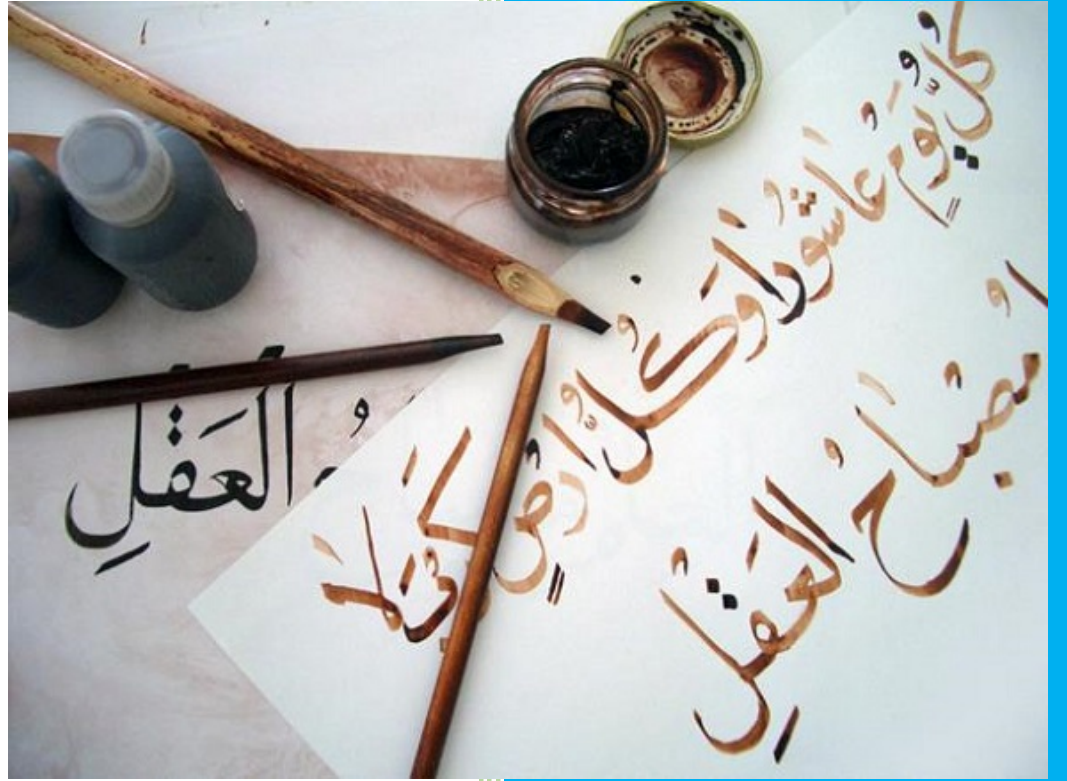 كُلُّ يَوْمٍ عَاشُورَا وَكُلُّ ارْضٍ كَرْبَلَا
مُصْبَاحُ العَقْلِ
العَقْلِ